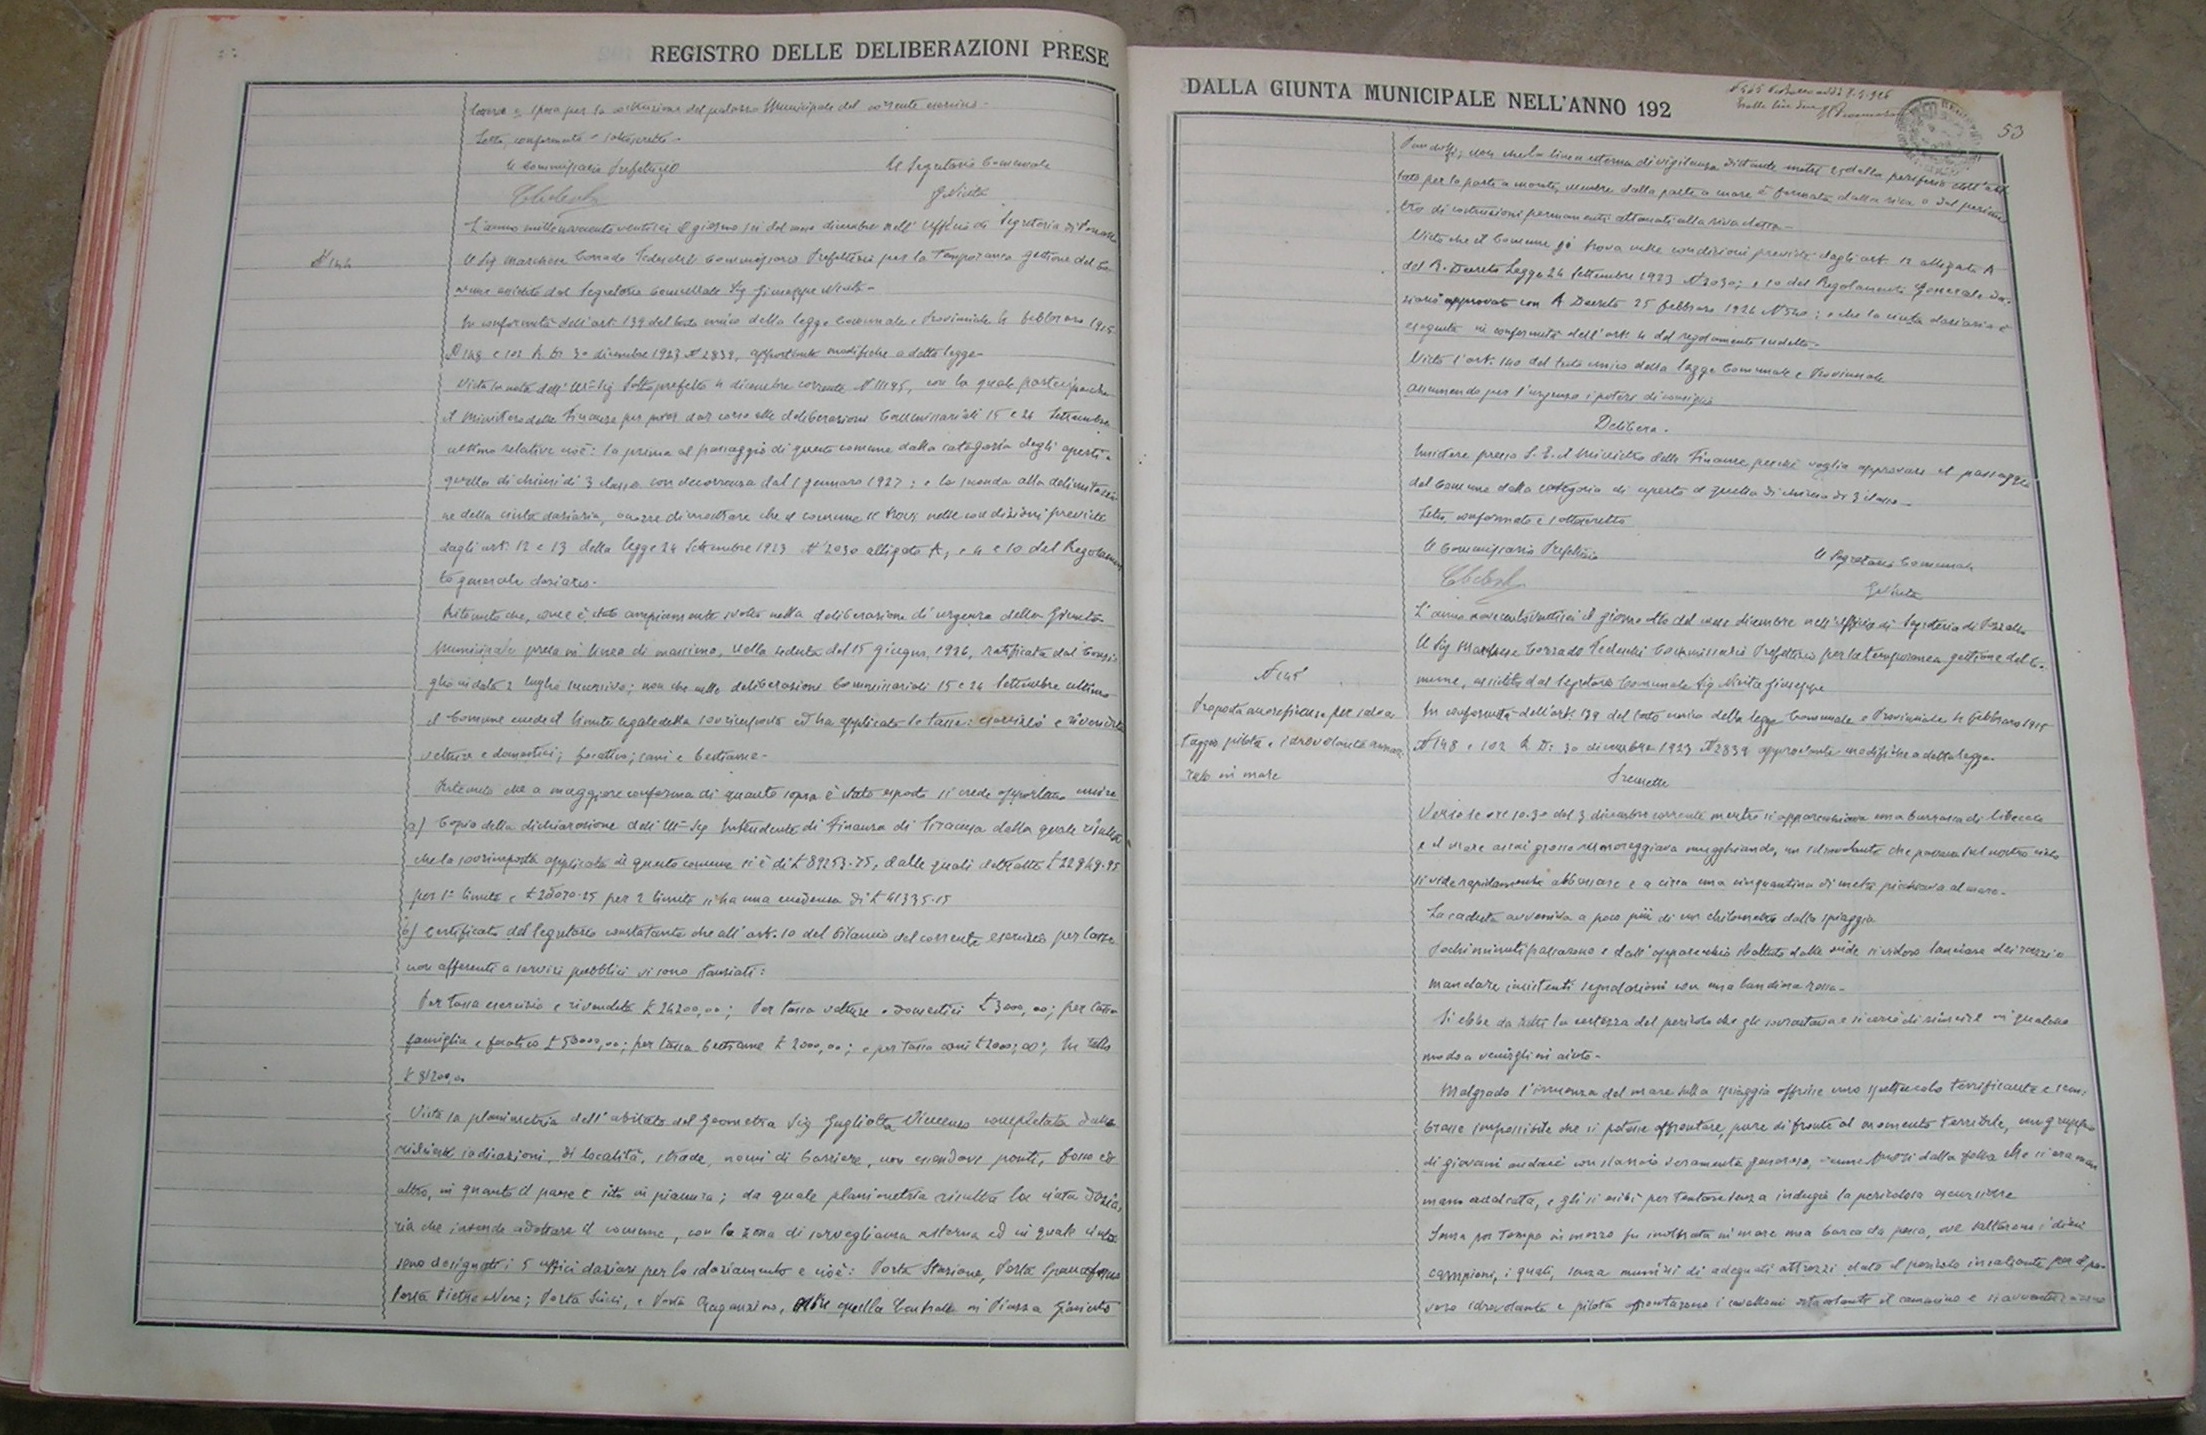 REGISTRO DELLE DELIBERAZIONI PRESE
spesa per la costruzione del palazzo Municipale del corrente esercizio -
Letto, confermato e sottoscritto -
Il Commissario Prefettizio
Il Segretario Comunale
G. Nivita
L'anno millenovecentoventisei il giorno sei del mese dicembre nell'Ufficio di Segreteria di Pozzallo
N 144
Il Sig Marchese Corrado Tedeschi Commissario Prefettizio per la temporanea gestione del Co-
mune assistito dal Segretario Comunale Sig Giuseppe Nivita -
In conformità dell'art 139 del testo unico della legge Comunale e Provinciale 4 febbraro 1915
N 148 e 102 R. D. 30 dicembre 1923 N 2839, apportante modifiche a detta legge -
Vista la nota dell'Ill Sig Sottoprefetto 4 dicembre corrente N 11195, con la quale partecipa che
il Ministero delle Finanze per poter dar corso alle deliberazioni Commissariali 15 e 24 Settembre
ultimo relative cioè: la prima al passaggio di questo comune dalla categoria degli aperti a
quella di chiusi di 3 classe con decorrenza dal 1 gennaro 1927; e la seconda alla delimitazio
ne della cinta daziaria, occorre dimostrare che il comune si trovi nelle condizioni previste
dagli art. 12 e 13 della legge 24 Settembre 1923 N 2030 allegato A, e 4 e 10 del Regolamen
to generale daziario.
Ritenuto che, come è stato ampiamente svolto nella deliberazione di urgenza della Giunta
Municipale presa in linea di massima, nella seduta del 15 giugno 1926, ratificata dal Consi
glio in data 2 luglio successivo; non che nelle deliberazioni Commissariali 15 e 24 Settembre ultimo
il Comune eccede il limite legale della sovrimposta ed ha applicato le tasse: esercizio e rivendita
vetture e domestici; focatico; cani e bestiame -
Ritenuto che a maggiore conferma di quanto sopra è stato esposto si crede opportuno unire
a) Copia della dichiarazione dell'Ill Sig Intendente di Finanza di Siracusa dalla quale risulta
che la sovrimposta applicata in questo comune si è di £ 89253.75, dalle quali detratte £ 22849.95
per 1° limite e £ 25070.25 per 2 limite si ha una eccedenza di £ 41335.15
b) Certificato del Segretario constatante che all'art. 10 del Bilancio del corrente esercizio per tasse
non afferenti a servizi pubblici vi sono stanziati:
Per tassa esercizio e rivendita £ 24200,00; Per tassa vetture e domestici £ 3000,00; per tassa
famiglia e focatico £ 50000,00; per tassa bestiame £ 2000,00; e per tassa cani £ 2000,00; In tutto
£ 81200,00
Vista la planimetria dell'abitato del Geometra Sig Gugliotta Vincenzo completata dalle
richieste indicazioni di località, strade, nomi di barriere, non essendovi ponti, fossi ed
altro, in quanto il paese è sito in pianura; da quale planimetria risulta la cinta dazia,
ria che intende adottare il comune, con la zona di sorveglianza esterna ed in quale cinta
sono designati i 5 uffici daziari per lo sdaziamento e cioè: Porta Stazione, Porta Spaccaforno
Porta Pietre Nere; Porta Scicli, e Porta Raganzino, oltre quella Centrale in Piazza Giacinto
DALLA GIUNTA MUNICIPALE NELL'ANNO 192
53
Pandolfi; non che la linea esterna di vigilanza distante metri 25 dalla periferia dell'abi
tato per la parte a monte, mentre dalla parte a mare è formata dalla riva o dal perime
tro di costruzioni permanenti attenenti alla riva stessa -
Visto che il Comune si trova nelle condizioni previste dagli art. 12 allegato A
del R. Decreto Legge 24 Settembre 1923 N 2030; e 10 del Regolamento Generale Da-
ziario approvato con R Decreto 25 febbraro 1924 N 540; e che la cinta daziaria è
eseguita in conformità dell'art. 4 del regolamento sudetto -
Visto l'art. 140 del testo unico della legge Comunale e Provinciale
assumendo per l'urgenza i poteri di consiglio
Delibera.
Insistere presso S. E. il Ministro delle Finanze perchè voglia approvare il passaggio
del Comune dalla categoria di aperto a quella di chiuso di 3 classe -
Letto, confermato e sottoscritto
Il Commissario Prefettizio
Il Segretario Comunale
G. Nivita
L'anno novecentoventisei il giorno otto del mese dicembre nell'Ufficio di Segreteria di Pozzallo
Il Sig Marchese Corrado Tedeschi Commissario Prefettizio per la temporanea gestione del Co-
mune, assistito dal Segretario Comunale Sig Nivita Giuseppe
N 145
Proposta onoreficenze per salva
taggio pilota e idrovolante ammar
rato in mare
In conformità dell'art. 139 del testo unico della legge Comunale e Provinciale 4 febbraro 1915
N 148 e 102 R D: 30 dicembre 1923 N 2839 apportante modifiche a detta legge -
Premette
Verso le ore 10.30 del 3 dicembre corrente mentre si apparecchiava una burrasca di libeccio
e il mare assai grosso rumoreggiava mugghiando, un idrovolante che passava sul nostro cielo
si vide rapidamente abbassare e a circa una cinquantina di metri picchiava al mare -
La caduta avveniva a poco più di un chilometro dalla spiaggia
Pochi minuti passarono e dall'apparecchio sbattuto dalle onde si videro lanciare dei razzi e
mandare insistenti segnalazioni con una bandiera rossa -
Si ebbe da tutti la certezza del pericolo che gli sovrastava e si cercò di riuscire in qualche
modo a venirgli in aiuto -
Malgrado l'irruenza del mare sulla spiaggia offrisse uno spettacolo terrificante e sem,
brasse impossibile che si potesse affrontare, pure di fronte al momento terribile, un gruppo
di giovani audaci con slancio veramente generoso, venne fuori dalla folla che si era man
mano accalcata, e gli si esibì per tentare senza indugio la pericolosa escursione
Senza por tempo in mezzo fu inoltrata in mare una barca da pesca, ove saltarono i dieci
campioni, i quali, senza munirsi di adeguati attrezzi dato il pericolo incalzante per il po-
vero idrovolante e pilota affrontarono i cavalloni ostacolanti il cammino e si avventurarono